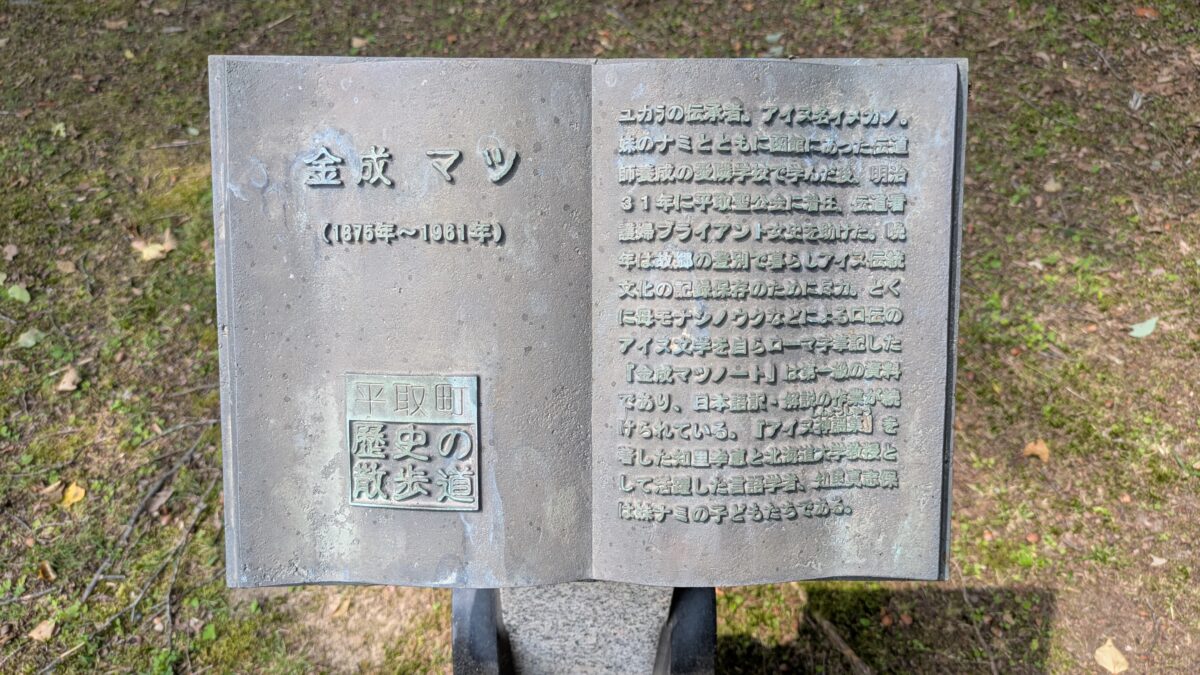 金成 マツ
(1875年〜1961年)
平取町
歴史の
散歩道
ユカㇻの伝承者。アイヌ名イメカノ。
妹のナミとともに函館にあった伝道
師養成の愛隣学校で学んだ後、明治
31年に平取聖公会に着任、伝道看
護婦ブライアント女史を助けた。晩
年は故郷の登別で暮らしアイヌ伝統
文化の記録保存のために尽力。とく
に母モナシノウクなどによる口伝の
アイヌ文学を自らローマ字筆記した
『金成マツノート』は第一級の資料
であり、日本語訳・解説の作業が続
けられている。『アイヌ神謡集』を
著した知里幸恵と北海道大学教授と
して活躍した言語学者、知里真志保
は妹ナミの子どもたちである。